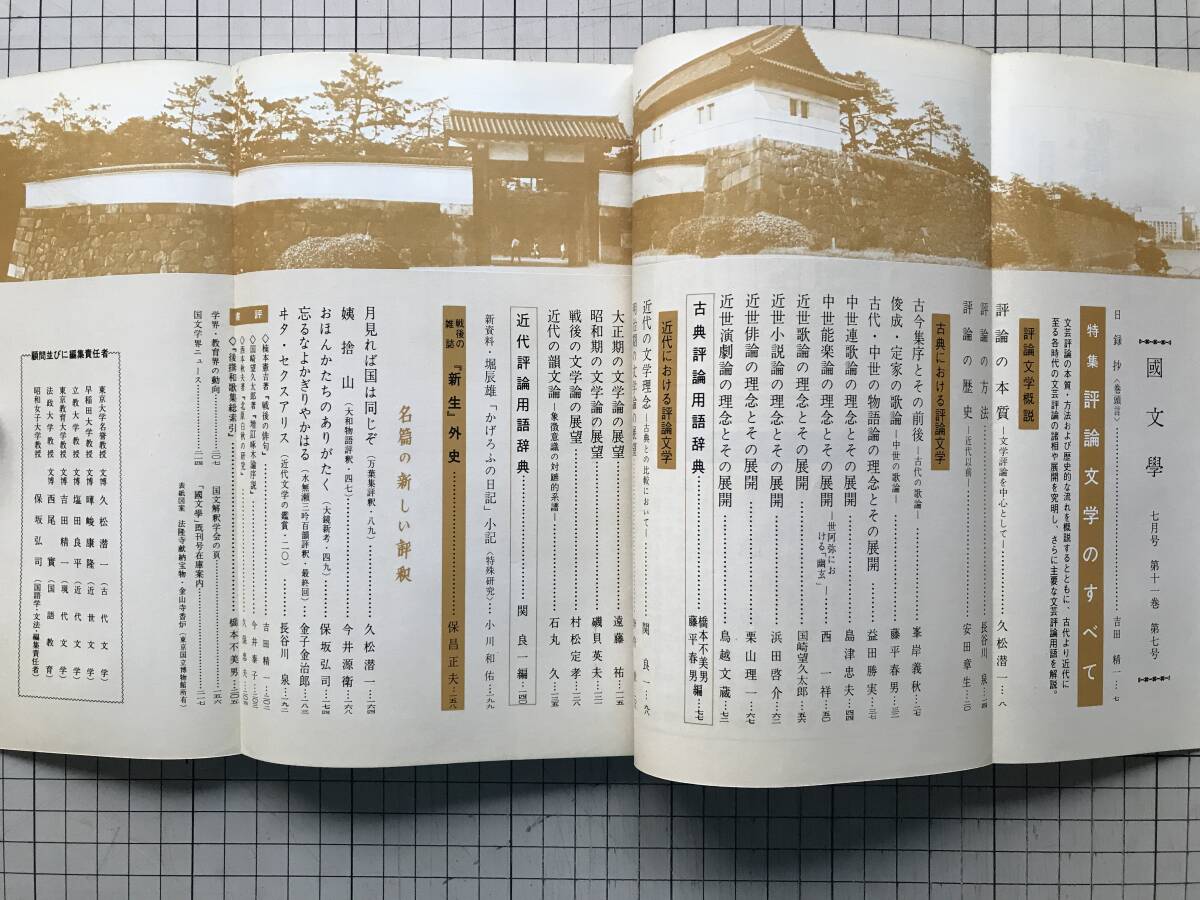 國文學 七月号 第十一巻 第七号
目録抄〈巻頭言〉……吉田精一…七
特集 評論文学のすべて
文芸評論の本質・方法および歴史的な流れを概説するとともに、古代より近代に
至る各時代の文芸評論の諸相や展開を究明し、さらに主要な文芸評論用語を解説。
評論文学概説
評論の本質―文学評論を中心として―……久松潜一…八
評論の方法……長谷川泉…一四
評論の歴史―近代以前―……安田章生…二〇
古典における評論文学
古今集序とその前後―古代の歌論―……峯岸義秋…二七
俊成・定家の歌論―中世の歌論―……藤平春男…三二
古代・中世の物語論の理念とその展開……益田勝実…三七
中世連歌論の理念とその展開……島津忠夫…四四
中世能楽論の理念とその展開―世阿弥における「幽玄」―……西一祥…五〇
近世歌論の理念とその展開……国崎望久太郎…五六
近世小説論の理念とその展開……浜田啓介…六三
近世俳論の理念とその展開……栗山理一…六七
近世演劇論の理念とその展開……鳥越文蔵…七二
古典評論用語辞典……橋本不美男 藤平春男 編…七七
近代における評論文学
近代の文学理念―古典との比較において―……関良一…
明治期の文学論の展望
大正期の文学論の展望……遠藤祐…
昭和期の文学論の展望……磯貝英夫…
戦後の文学論の展望……村松定孝…
近代の韻文論―象徴意識の対蹠的系譜―……石丸久…
近代評論用語辞典……関良一編…
新資料・堀辰雄「かげろふの日記」小記〈特殊研究〉……小川和佑…
戦後の雑誌 『新生』外史……保昌正夫…一五八
名篇の新しい評釈
月見れば国は同じぞ(万葉集評釈・八九)……久松潜一…一六四
姨捨山(大和物語評釈・四七)……今井源衛…一六八
おほんかたちのありがたく(大鏡新考・四九)……保坂弘司…一七四
忘るなよかぎりやかはる(水無瀬三吟百韻評釈・最終回)……金子金治郎…一八八
ヰタ・セクスアリス(近代文学の鑑賞・二〇)……長谷川泉…一九二
書評
◇楠本憲吉著『戦後の俳句』……吉田精一…二〇二
◇国崎望久太郎著『増訂啄木論序説』……今井泰子…
◇西本秋夫著『北原白秋の研究』……久保忠夫…
◇『後撰和歌集総索引』……橋本不美男…二〇五
学界・教育界の動向……
国文学界ニュース……二一四
国文解釈学会の頁……
「國文學」既刊号在庫案内……
表紙図案 法隆寺献納宝物・金山寺香炉(東京国立博物館所有)
顧問並びに編集責任者
東京大学名誉教授 文博 久松潜一(古代文学)
早稲田大学教授 文博 暉峻康隆(近世文学)
立教大学教授 文博 塩田良平(近代文学)
東京教育大学教授 文博 吉田精一(現代文学)
法政大学教授 文博 西尾實(国語教育)
昭和女子大学教授 保坂弘司(国語学・文法・編集責任者)